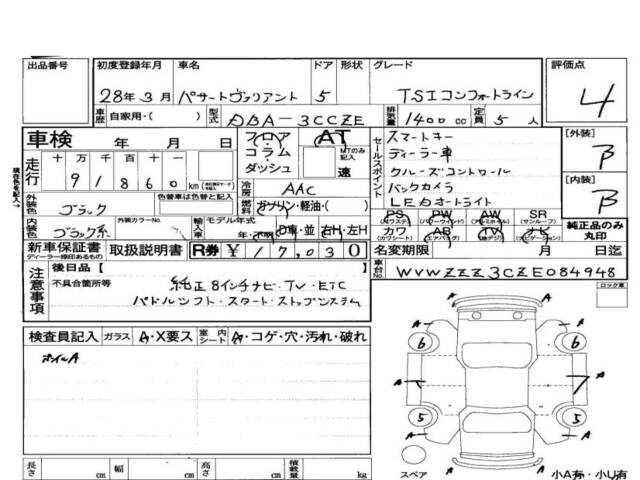 出品番号 初度登録年月 車名 ドア 形状 グレード 評価点
28年3月 パサートヴァリアント 5 TSIコンフォートライン 4
車歴 自家用・( ) 型式 DBA-3CCZE 排気量 1400 cc 定員 5 人
車検 年 月 日 フロア AT スマートキー [外装]
コラム MTのみ記入 ディーラー車 B
走行 十 万 千 百 十 一 ダッシュ 速 セールスポイント クルーズコントロール
9 1 8 6 0 km 冷房 AAC バックカメラ [内装]
現在色を記入→ 外装色 ブラック 色替車は色替と記入 燃料 ガソリン・軽油・( ) LEDオートライト B
PS PW AW SR
(パワステ) (パワーウインド) (アルミホイル) (サンルーフ)
内装色 ブラック系 外装カラーNo. 輸入車 モデル年式 カワ AB TV ナビ 純正品のみ丸印
年・ D車・並 右H・左H (カワシート) (エアバッグ) (ナビゲーション)
新車保証書 取扱説明書 R券 ¥17,030 名変期限 月 日迄
ディーラー捺印あるもの
注意事項 後日品〔 〕 車台No. WVWZZZ3CZE084948
不具合箇所等 純正8インチナビ・TV・ETC ロック車
パドルシフト・スタート・ストップシステム
検査員記入 ガラス A・X要ス 室内シート A・コゲ・穴・汚れ・破れ
ホイルA
A A
6 6
A 7 A
5 5
A A
長さ cm 幅 cm 高さ cm 積載量 kg スペア 小A有・小U有